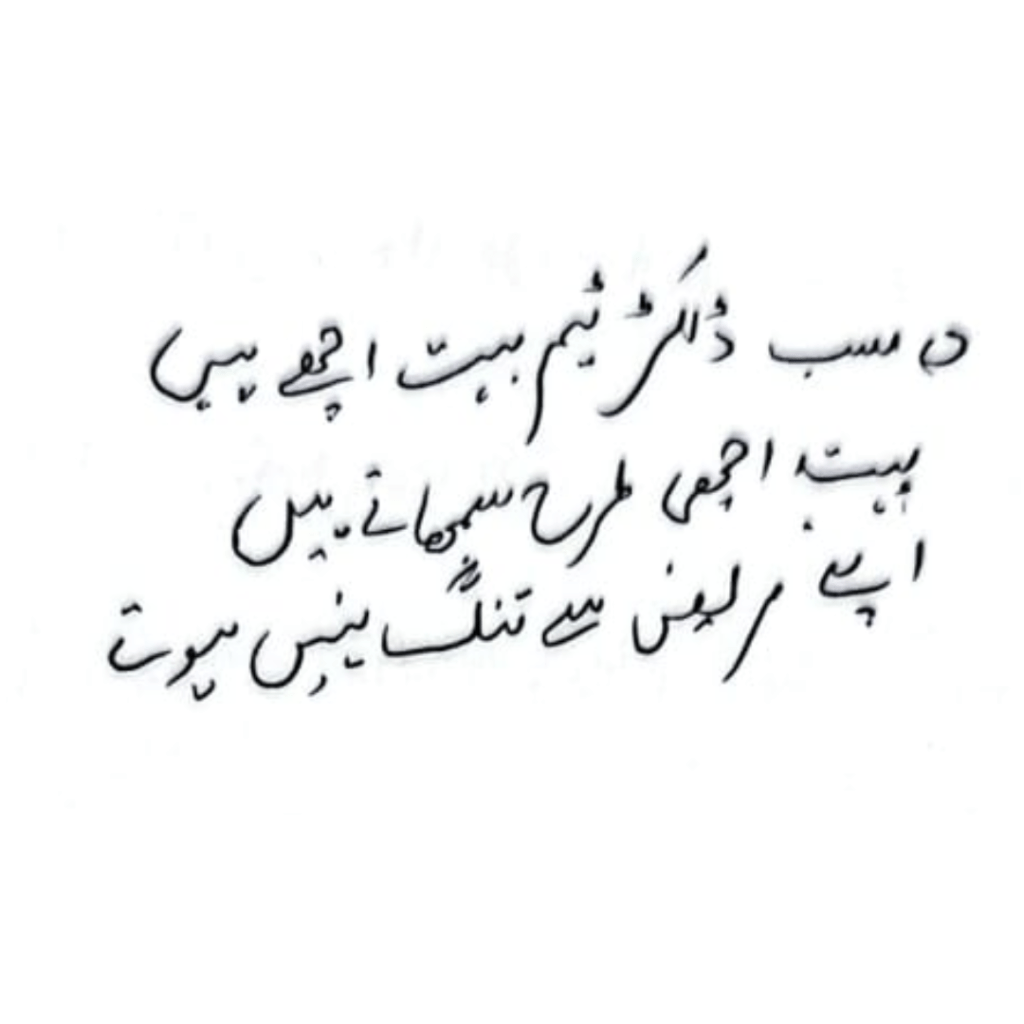 سب ڈاکٹر ٹیم بہت اچھے ہیں
بہت اچھی طرح سمجھاتے ہیں
اپنے مریض سے تنگ نہیں ہوتے